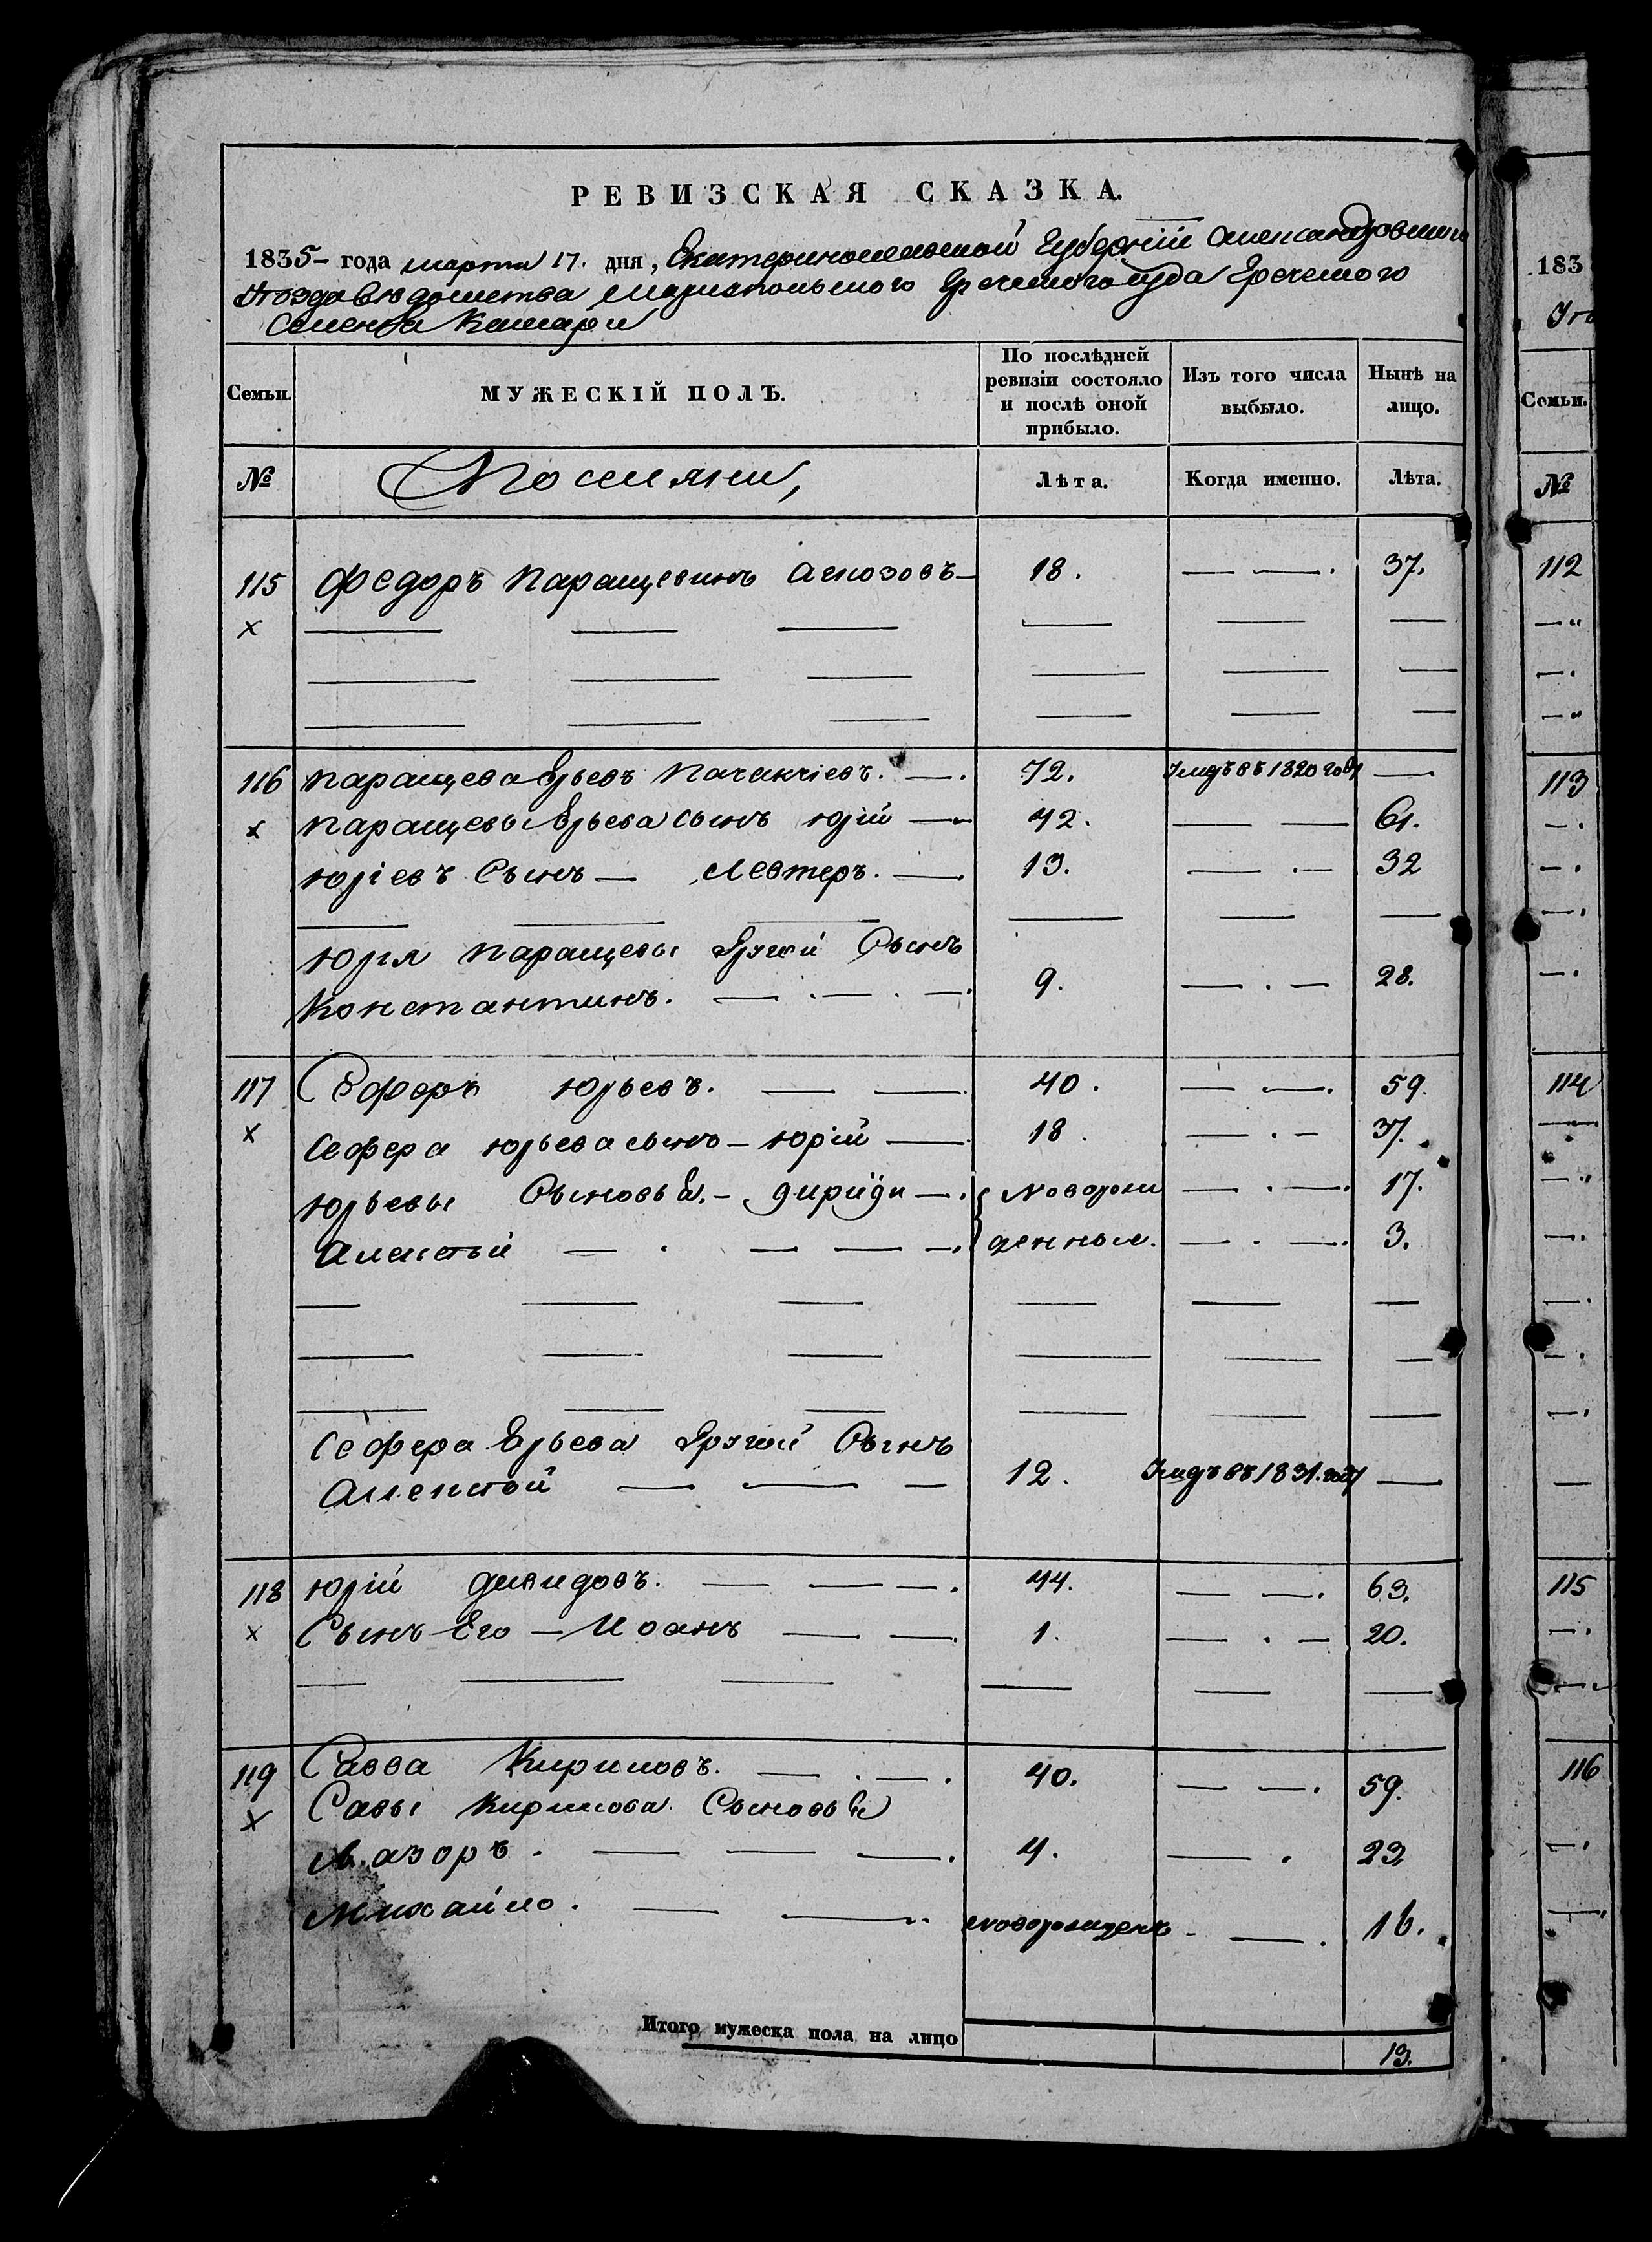 РЕВИЗСКАЯ СКАЗКА.
1835- года марта 17. дня, Екатеринославской Губернiи Александровского
Уезда ведомства Мариупольского Греческого суда Греческого
Селенiя Камари
Семьи. МУЖЕСКIЙ ПОЛЪ. По послѣдней ревизiи состояло и послѣ оной прибыло. Изъ того числа выбыло. Нынѣ на лицо.
№ Поселяне, Лѣта. Когда именно. Лѣта.
115 Федоръ Паращевинъ 18. — —. 37.
х — — — — — —
— — — — — —
— — — — — —
116 Паращева Юрьевъ —. 72. Умеръ въ 1820 году —
х Паращевы Юрьева сынъ Юрiй — 42. — — 61.
Юрiевъ Сынъ — Левтеръ. — 13. — . — 32
— — — — — —
Юрiя Паращевы другой Сынъ
Константинъ. — . — . —. 9. — . — 28.
117 Сеферъ Юрьевъ. — —. 40. — —. 59.
х Сефера Юрьева сынъ — Юрiй — 18. — . — 37.
Юрьевы Сыновья. — —. новорож — . —. 17.
Алексей — . — — —. денные. — . —. 3.
— — — — — —
— — — — — —
— — — — — —
Сефера Юрьева другой Сынъ
Алексей — — — 12. Умеръ въ 1831. году —
118 Юрiй Давидовъ. — — —. 44. — —. 63.
х Сынъ Его — Иоанъ — —. 1. — . — 20.
— — — — — —
119 Савва Кириловъ. — . —. 40. — —. 59.
х Савы Кирилова Сыновья
Лазоръ. — — —. 4. — . 23
Михайло. — — новорожденъ — . 16.
Итого мужеска пола на лицо 13.
183
Семьи.
№
112
113
114
115
116